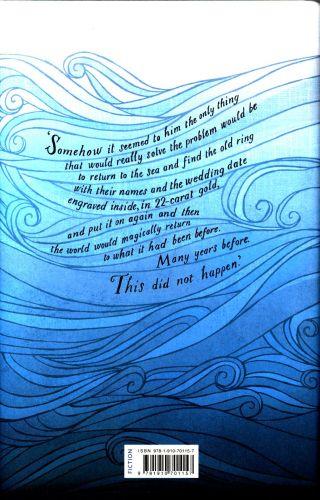 'Somehow it seemed to him the only thing
that would really solve the problem would be
to return to the sea and find the old ring
with their names and the wedding date
engraved inside, in 22-carat gold,
and put it on again and then
the world would magically return
to what it had been before.
Many years before.
This did not happen.'
FICTION
ISBN 978-1-910-70115-7
9 781910 701157